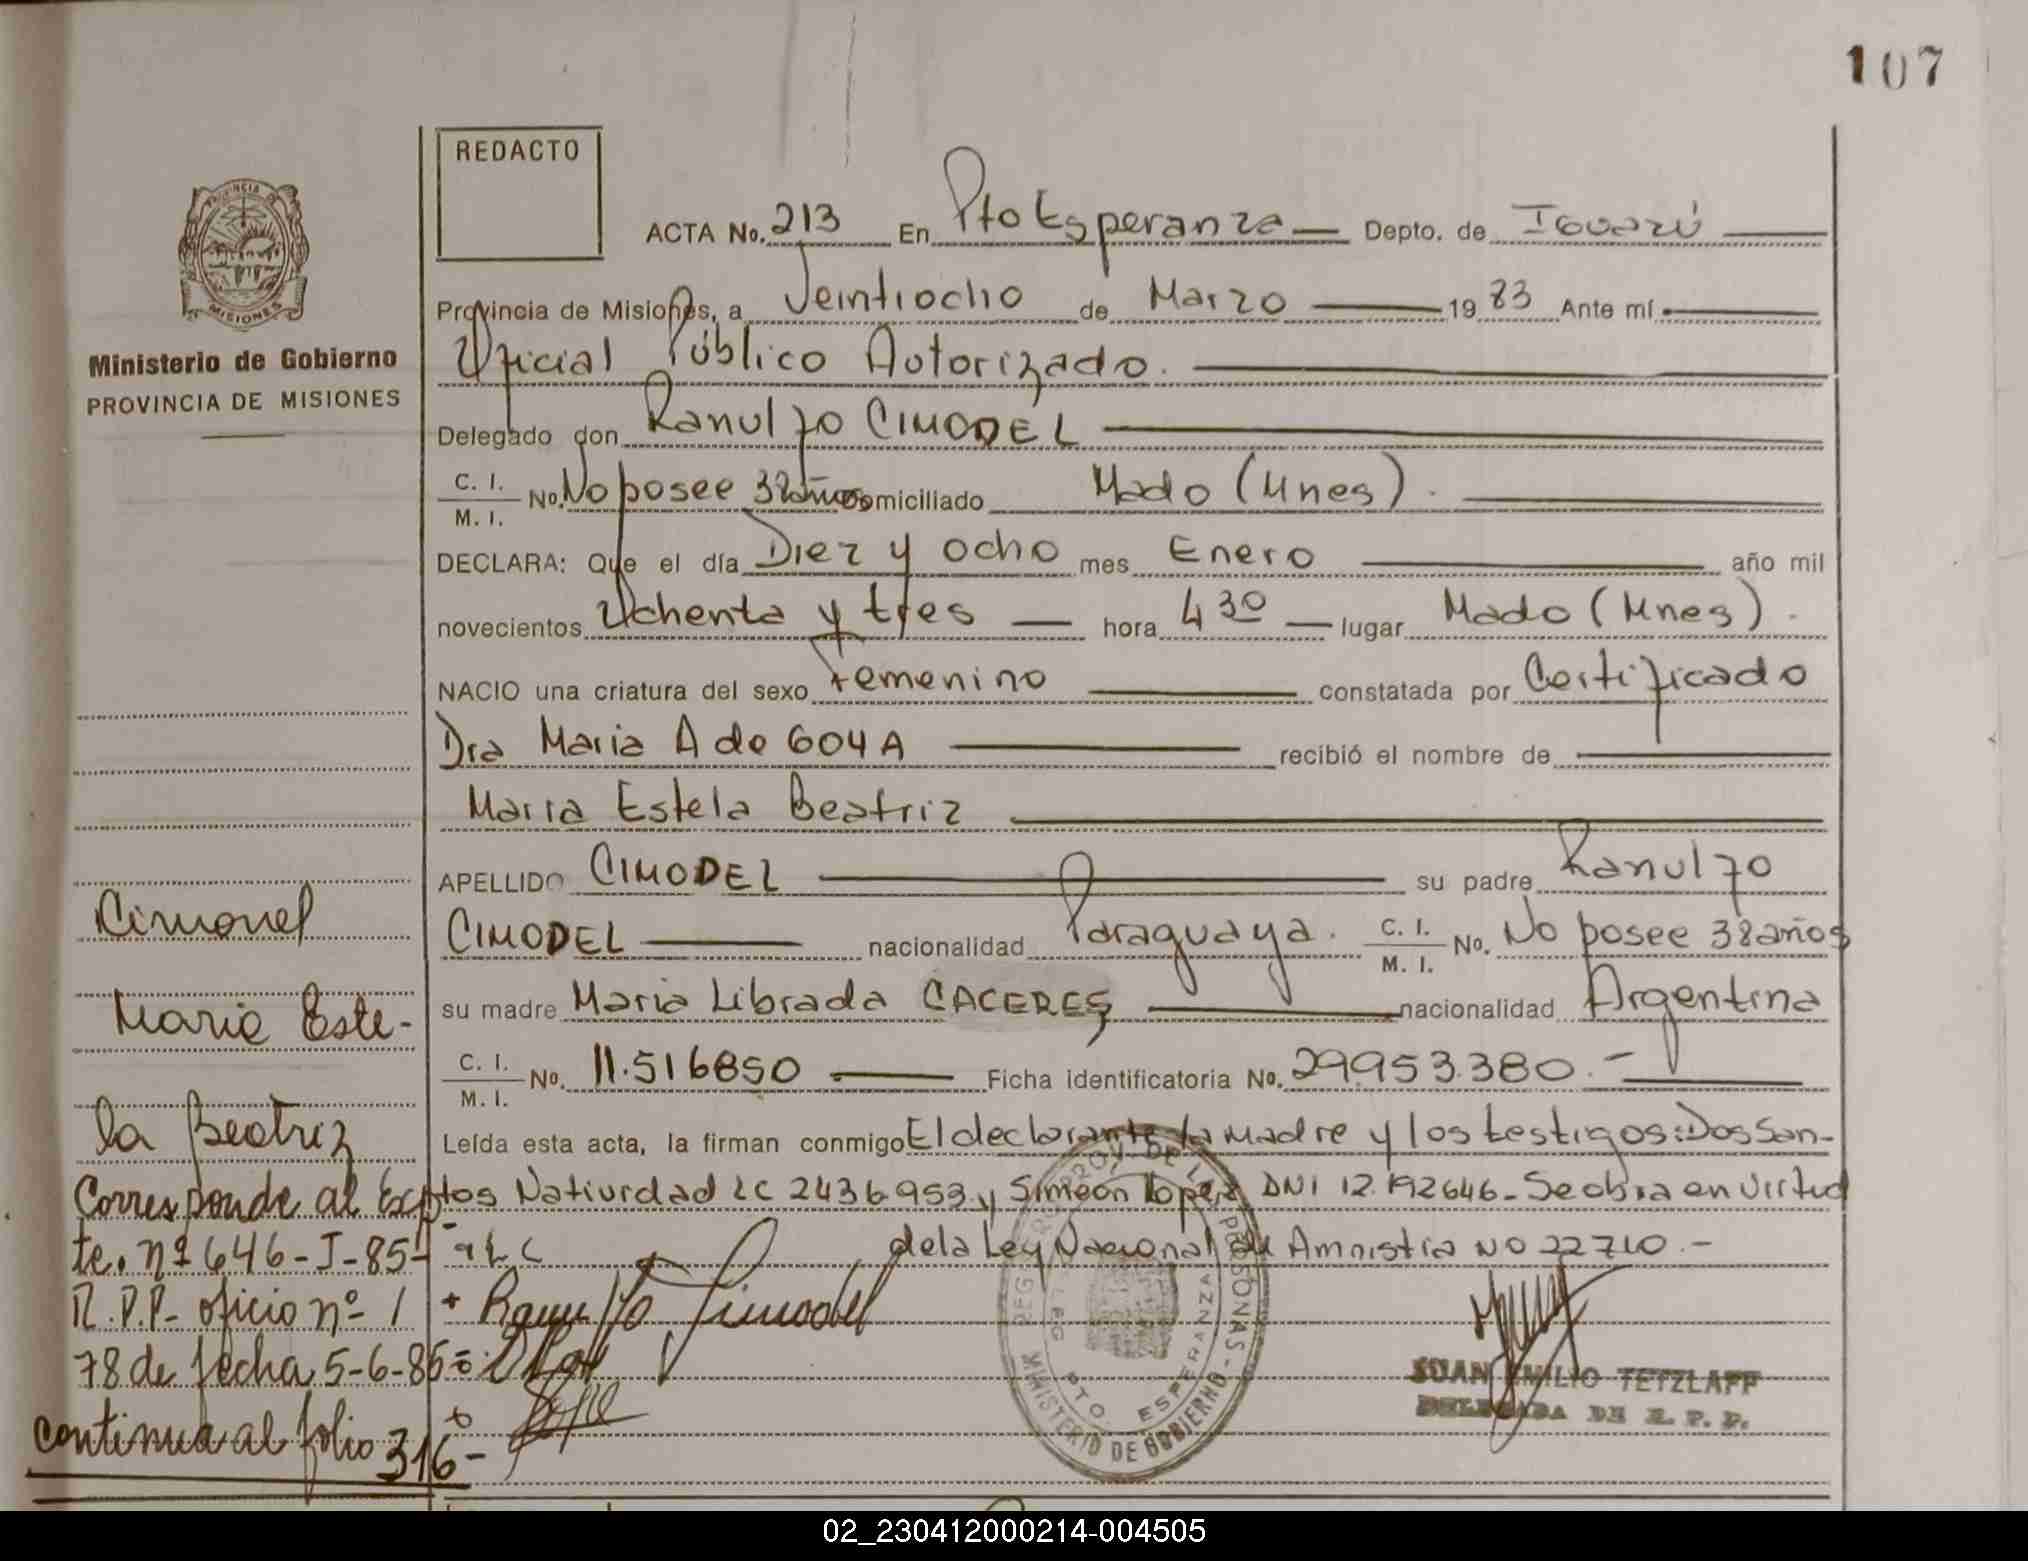 107
REDACTO
ACTA No. 213 En Pto Esperanza Depto. de Iguazú
Provincia de Misiones, a Veintiocho de Marzo 1983 Ante mí
Oficial Público Autorizado.
Delegado don Ranulfo CIMODEL
C. I. M. I. No. No posee 32 años domiciliado Mado (Mnes).
DECLARA: Que el día Diez y ocho mes Enero año mil
novecientos Ochenta y tres hora 4 30 lugar Mado (Mnes).
NACIO una criatura del sexo Femenino constatada por Certificado
Dra Maria A de GOYA recibió el nombre de
Maria Estela Beatriz
APELLIDO CIMODEL su padre Ranulfo
CIMODEL nacionalidad Paraguaya. C. I. M. I. No. No posee 32 años
su madre Maria Librada CACERES nacionalidad Argentina
C. I. M. I. No. 11.516850 Ficha identificatoria No. 29953.380.-
Leída esta acta, la firman conmigo El declarante la Madre y los testigos: Dos San-
tos Natividad LC 2436953 y Simeón Lopez DNI 12.192646- Se obra en virtud
de la Ley Nacional de Amnistia NO 22710.-
Ranulfo Cimodel
JUAN EMILIO TETZLAFF
DELEGADA DE R. P. P.
PROV. DE LAS PERSONAS - MINISTERIO DE GOBIERNO
PTO. ESPERANZA
PROVINCIA DE MISIONES
Ministerio de Gobierno
PROVINCIA DE MISIONES
Cimodel
Maria Este-
la Beatriz
Corresponde al Exp
te. nº 646-J-85-
R.P.P- oficio nº 1
78 de fecha 5-6-85
continua al folio 316-
02_230412000214-004505